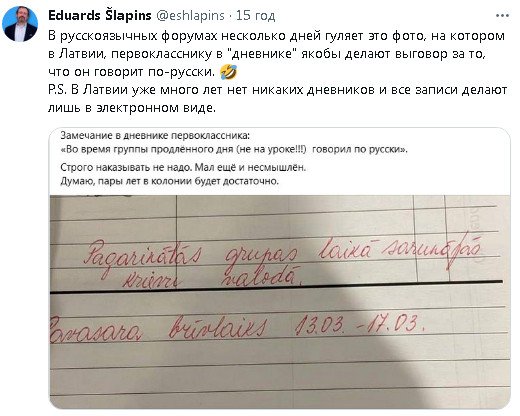 Eduards Šlapins @eshlapins · 15 год
В русскоязычных форумах несколько дней гуляет это фото, на котором
в Латвии, первокласснику в "дневнике" якобы делают выговор за то,
что он говорит по-русски. 🤣
P.S. В Латвии уже много лет нет никаких дневников и все записи делают
лишь в электронном виде.
Замечание в дневнике первоклассника:
«Во время группы продлённого дня (не на уроке!!!) говорил по русски».
Строго наказывать не надо. Мал ещё и несмышлён.
Думаю, пары лет в колонии будет достаточно.
Pagarinātās grupas laikā sarunājās
krievu valodā.
Pavasara brīvlaiks 13.03. - 17.03.